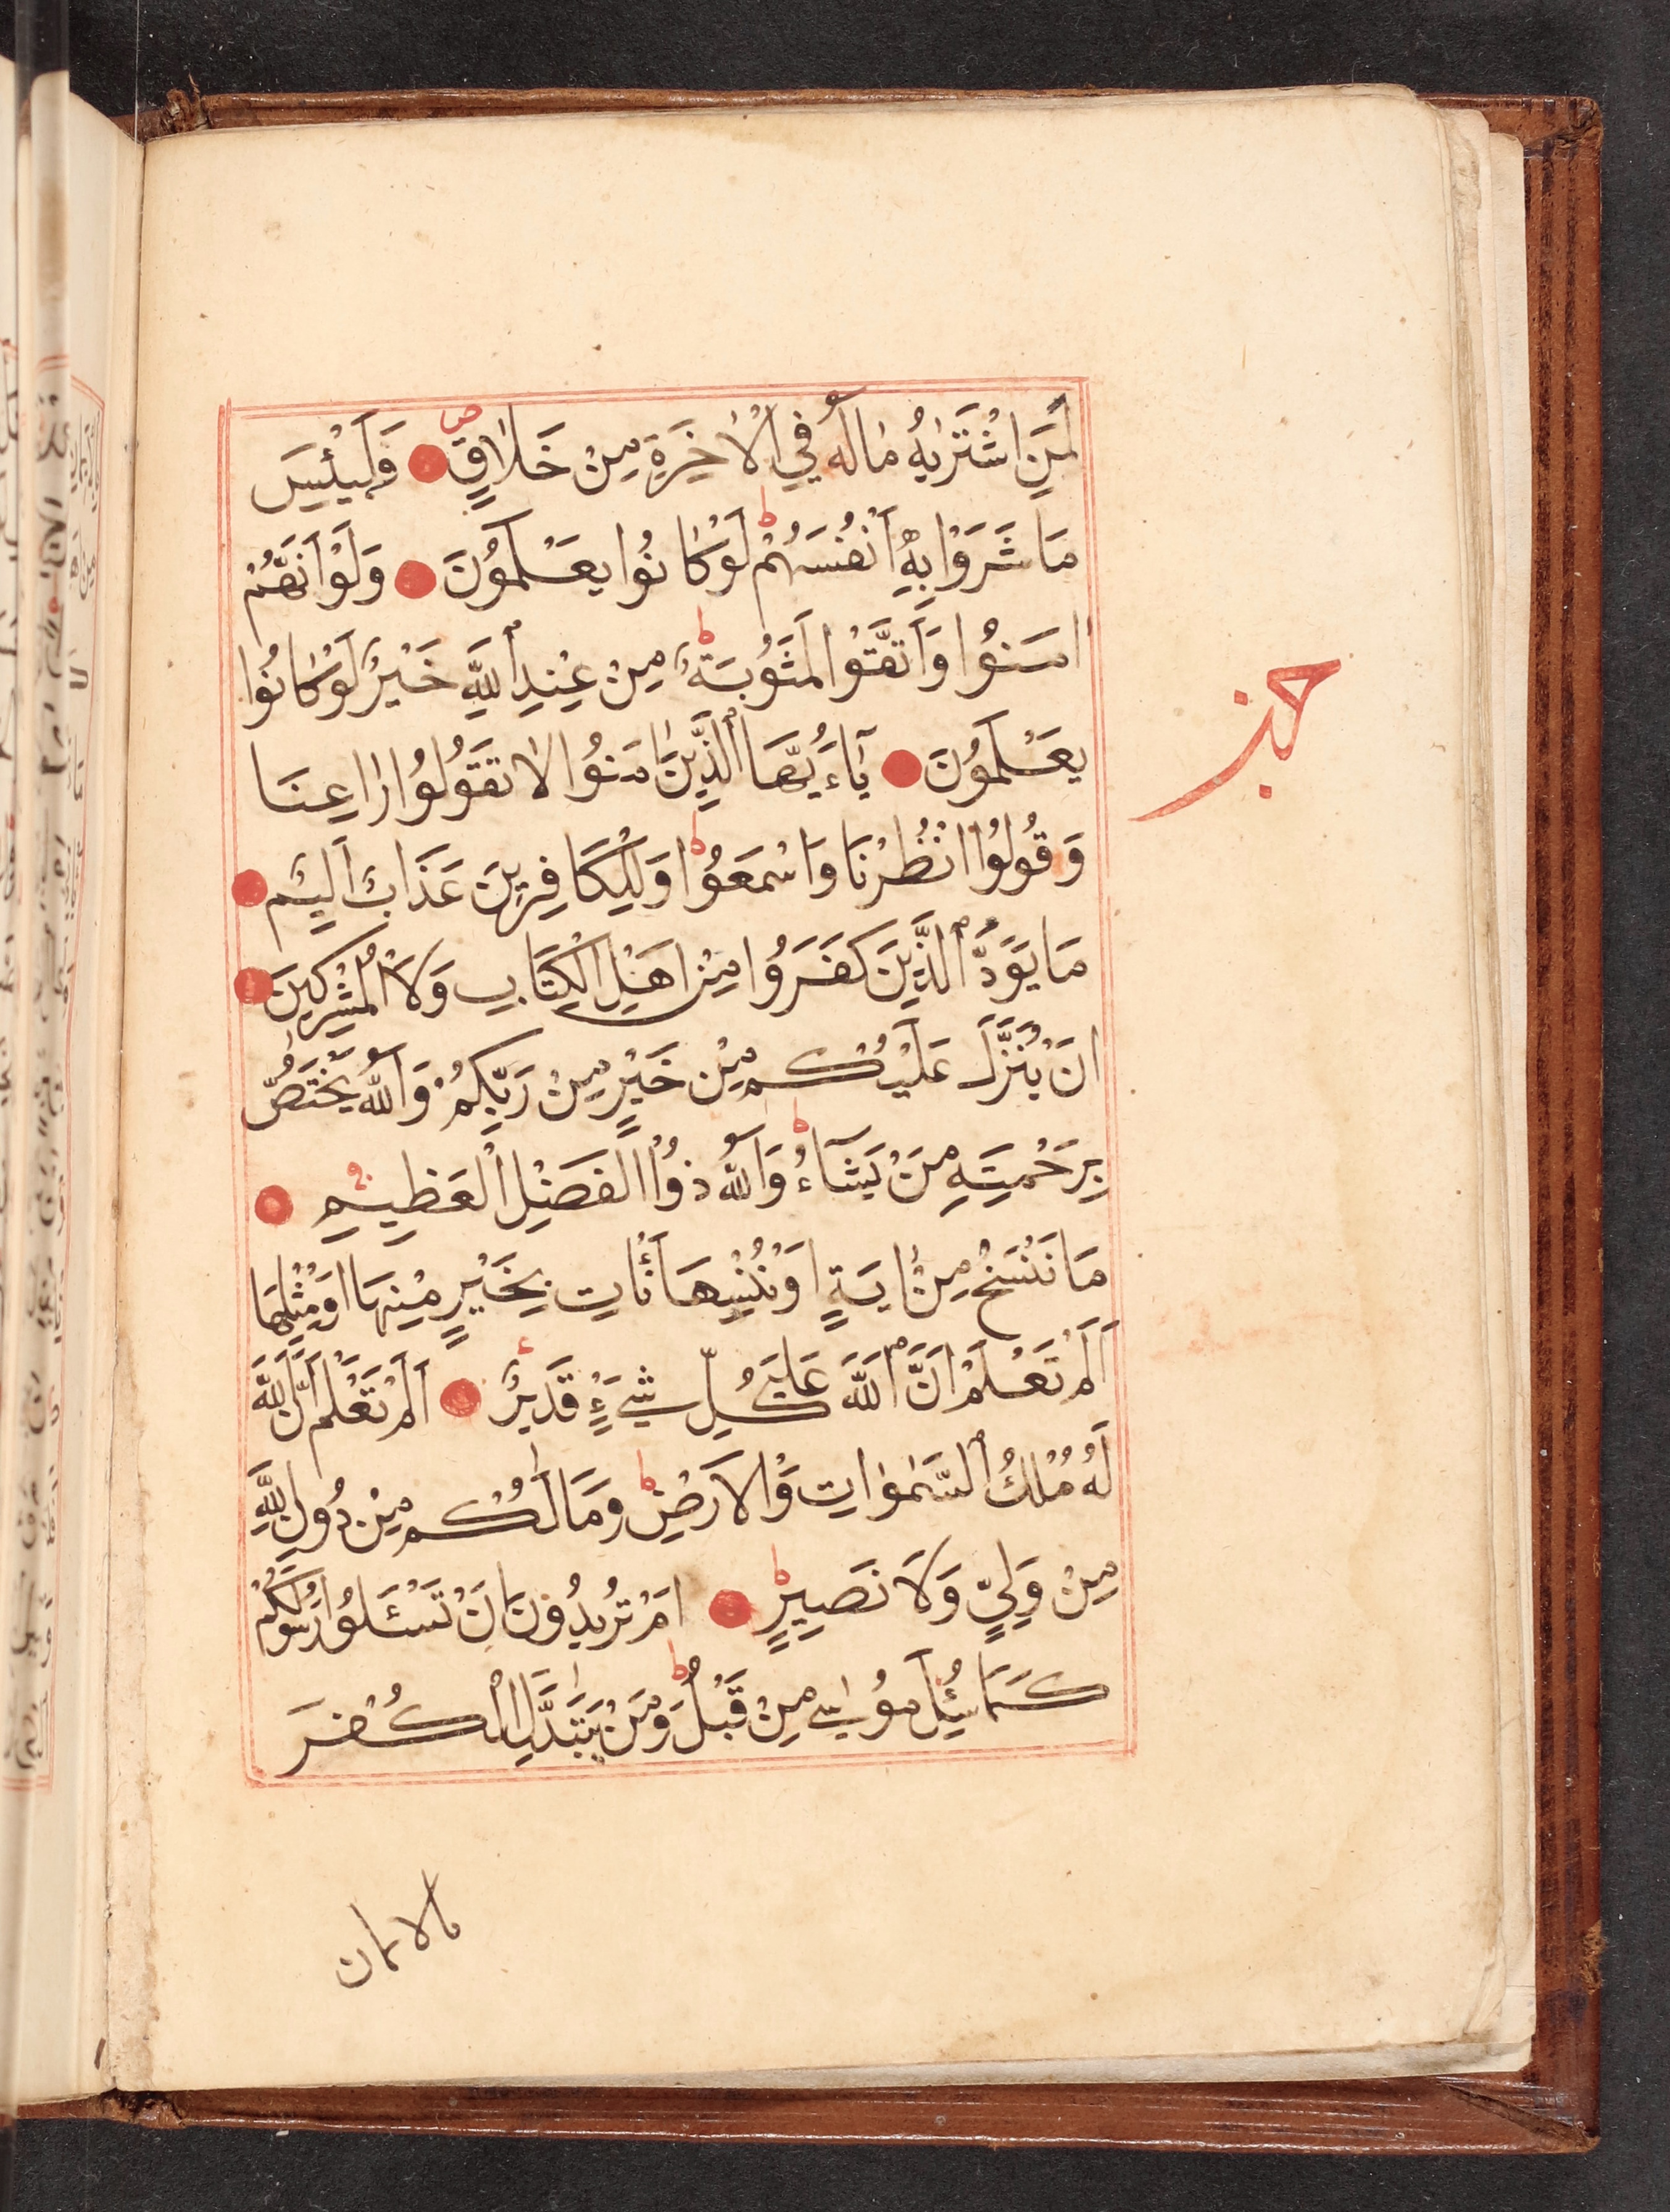 لَمَنِ اشْتَرَيٰهُ مَا لَهُ فِي الْاٰخِرَةِ مِنْ خَلَاقٍ ص وَلَبِئْسَ
مَا شَرَوْا بِهِ اَنْفُسَهُمْ ط لَوْ كَانُوا يَعْلَمُونَ وَلَوْ اَنَّهُمْ
اٰمَنُوا وَاتَّقَوْا لَمَثُوبَةٌ ط مِنْ عِنْدِ اللّٰهِ خَيْرٌ لَوْ كَانُوا
يَعْلَمُونَ يَاءَيُّهَا الَّذِينَ اٰمَنُوا لَا تَقُولُوا رَاعِنَا
وَقُولُوا انْظُرْنَا وَاسْمَعُوا ط وَلِلْكَافِرِينَ عَذَابٌ اَلِيمٌ
مَا يَوَدُّ الَّذِينَ كَفَرُوا مِنْ اَهْلِ الْكِتَابِ وَلَا الْمُشْرِكِينَ
اَنْ يُنَزَّلَ عَلَيْكُمْ مِنْ خَيْرٍ مِنْ رَبِّكُمْ وَاللّٰهُ يَخْتَصُّ
بِرَحْمَتِهِ مَنْ يَشَآءُ ط وَاللّٰهُ ذُوا الْفَضْلِ الْعَظِيمِ
مَا نَنْسَخْ مِنْ اٰيَةٍ اَوْ نُنْسِهَا نَأْتِ بِخَيْرٍ مِنْهَا اَوْ مِثْلِهَا
اَلَمْ تَعْلَمْ اَنَّ اللّٰهَ عَلٰي كُلِّ شَيْءٍ قَدِيرٌ ء اَلَمْ تَعْلَمْ اَنَّ اللّٰهَ
لَهُ مُلْكُ السَّمٰوَاتِ وَالْاَرْضِ ط وَمَا لَكُمْ مِنْ دُونِ اللّٰهِ
مِنْ وَلِيٍّ وَلَا نَصِيرٍ ط اَمْ تُرِيدُونَ اَنْ تَسْئَلُوا رَسُولَكُمْ
كَمَا سُئِلَ مُوسٰي مِنْ قَبْلُ ط وَمَنْ يَتَبَدَّلِ الْكُفْرَ
بالايمان